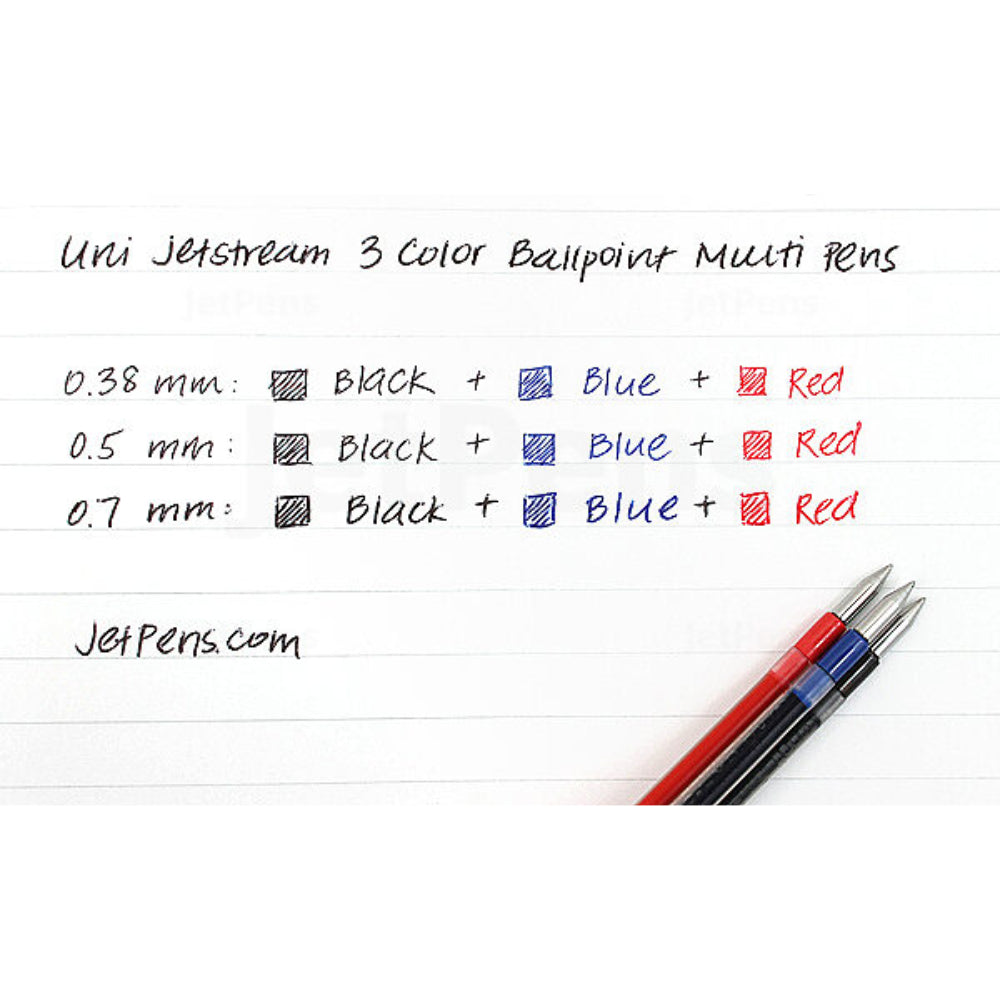 Uni Jetstream 3 Color Ballpoint Multi Pens
JetPens JetPens
0.38 mm: Black + Blue + Red
JetPens
0.5 mm: Black + Blue + Red
0.7 mm: Black + Blue + Red
JetPens.com